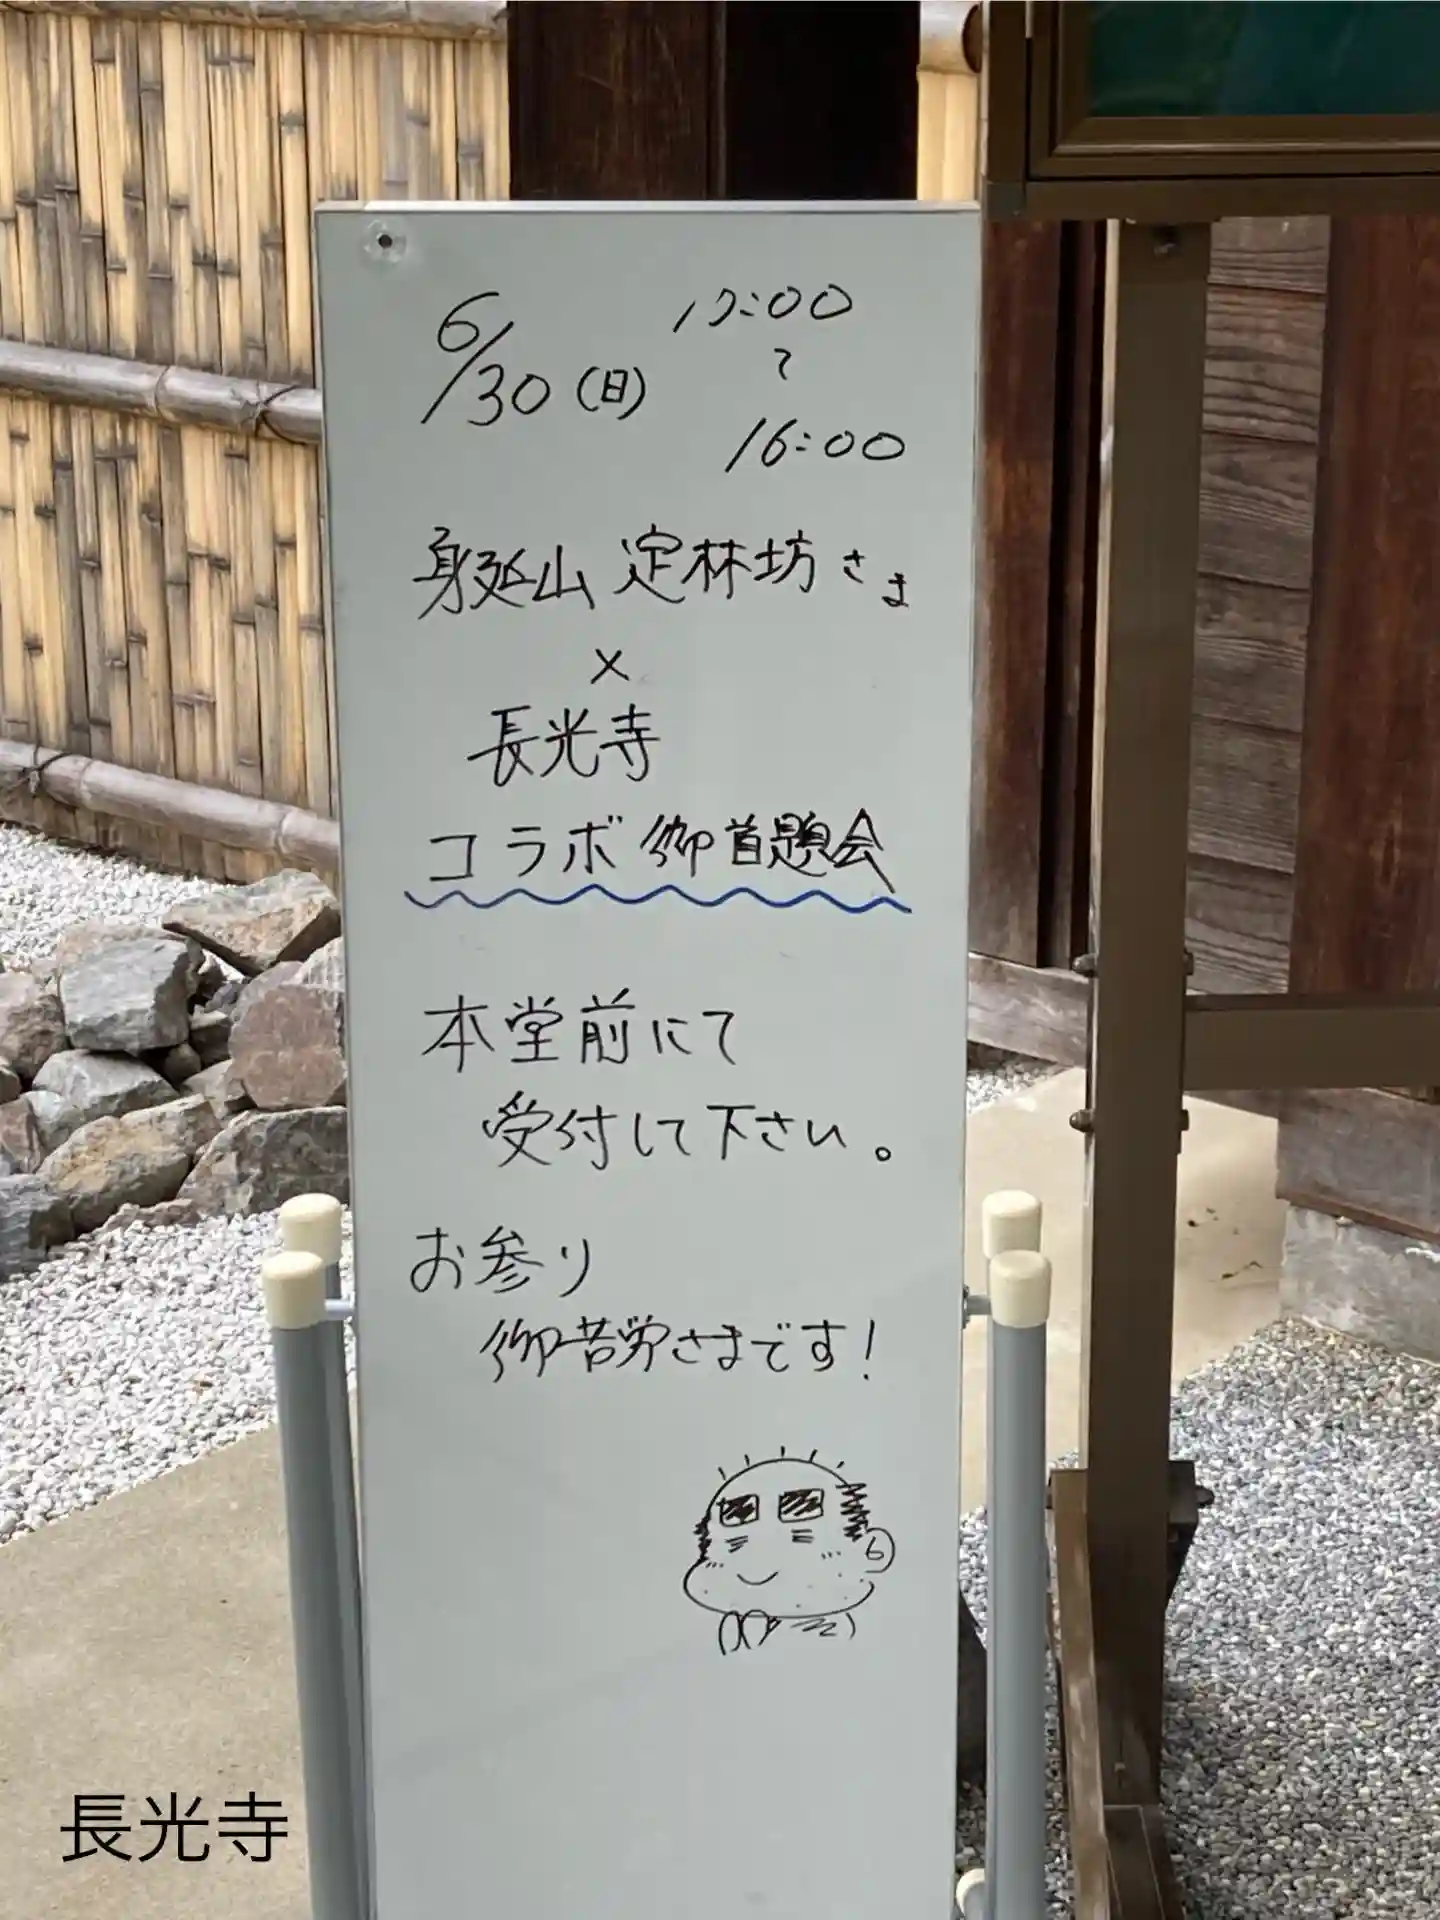 6/30（日） 10:00
〜
16:00
身延山 定林坊さま
×
長光寺
コラボ御首題会
本堂前にて
受付して下さい。
お参り
御苦労さまです！
長光寺